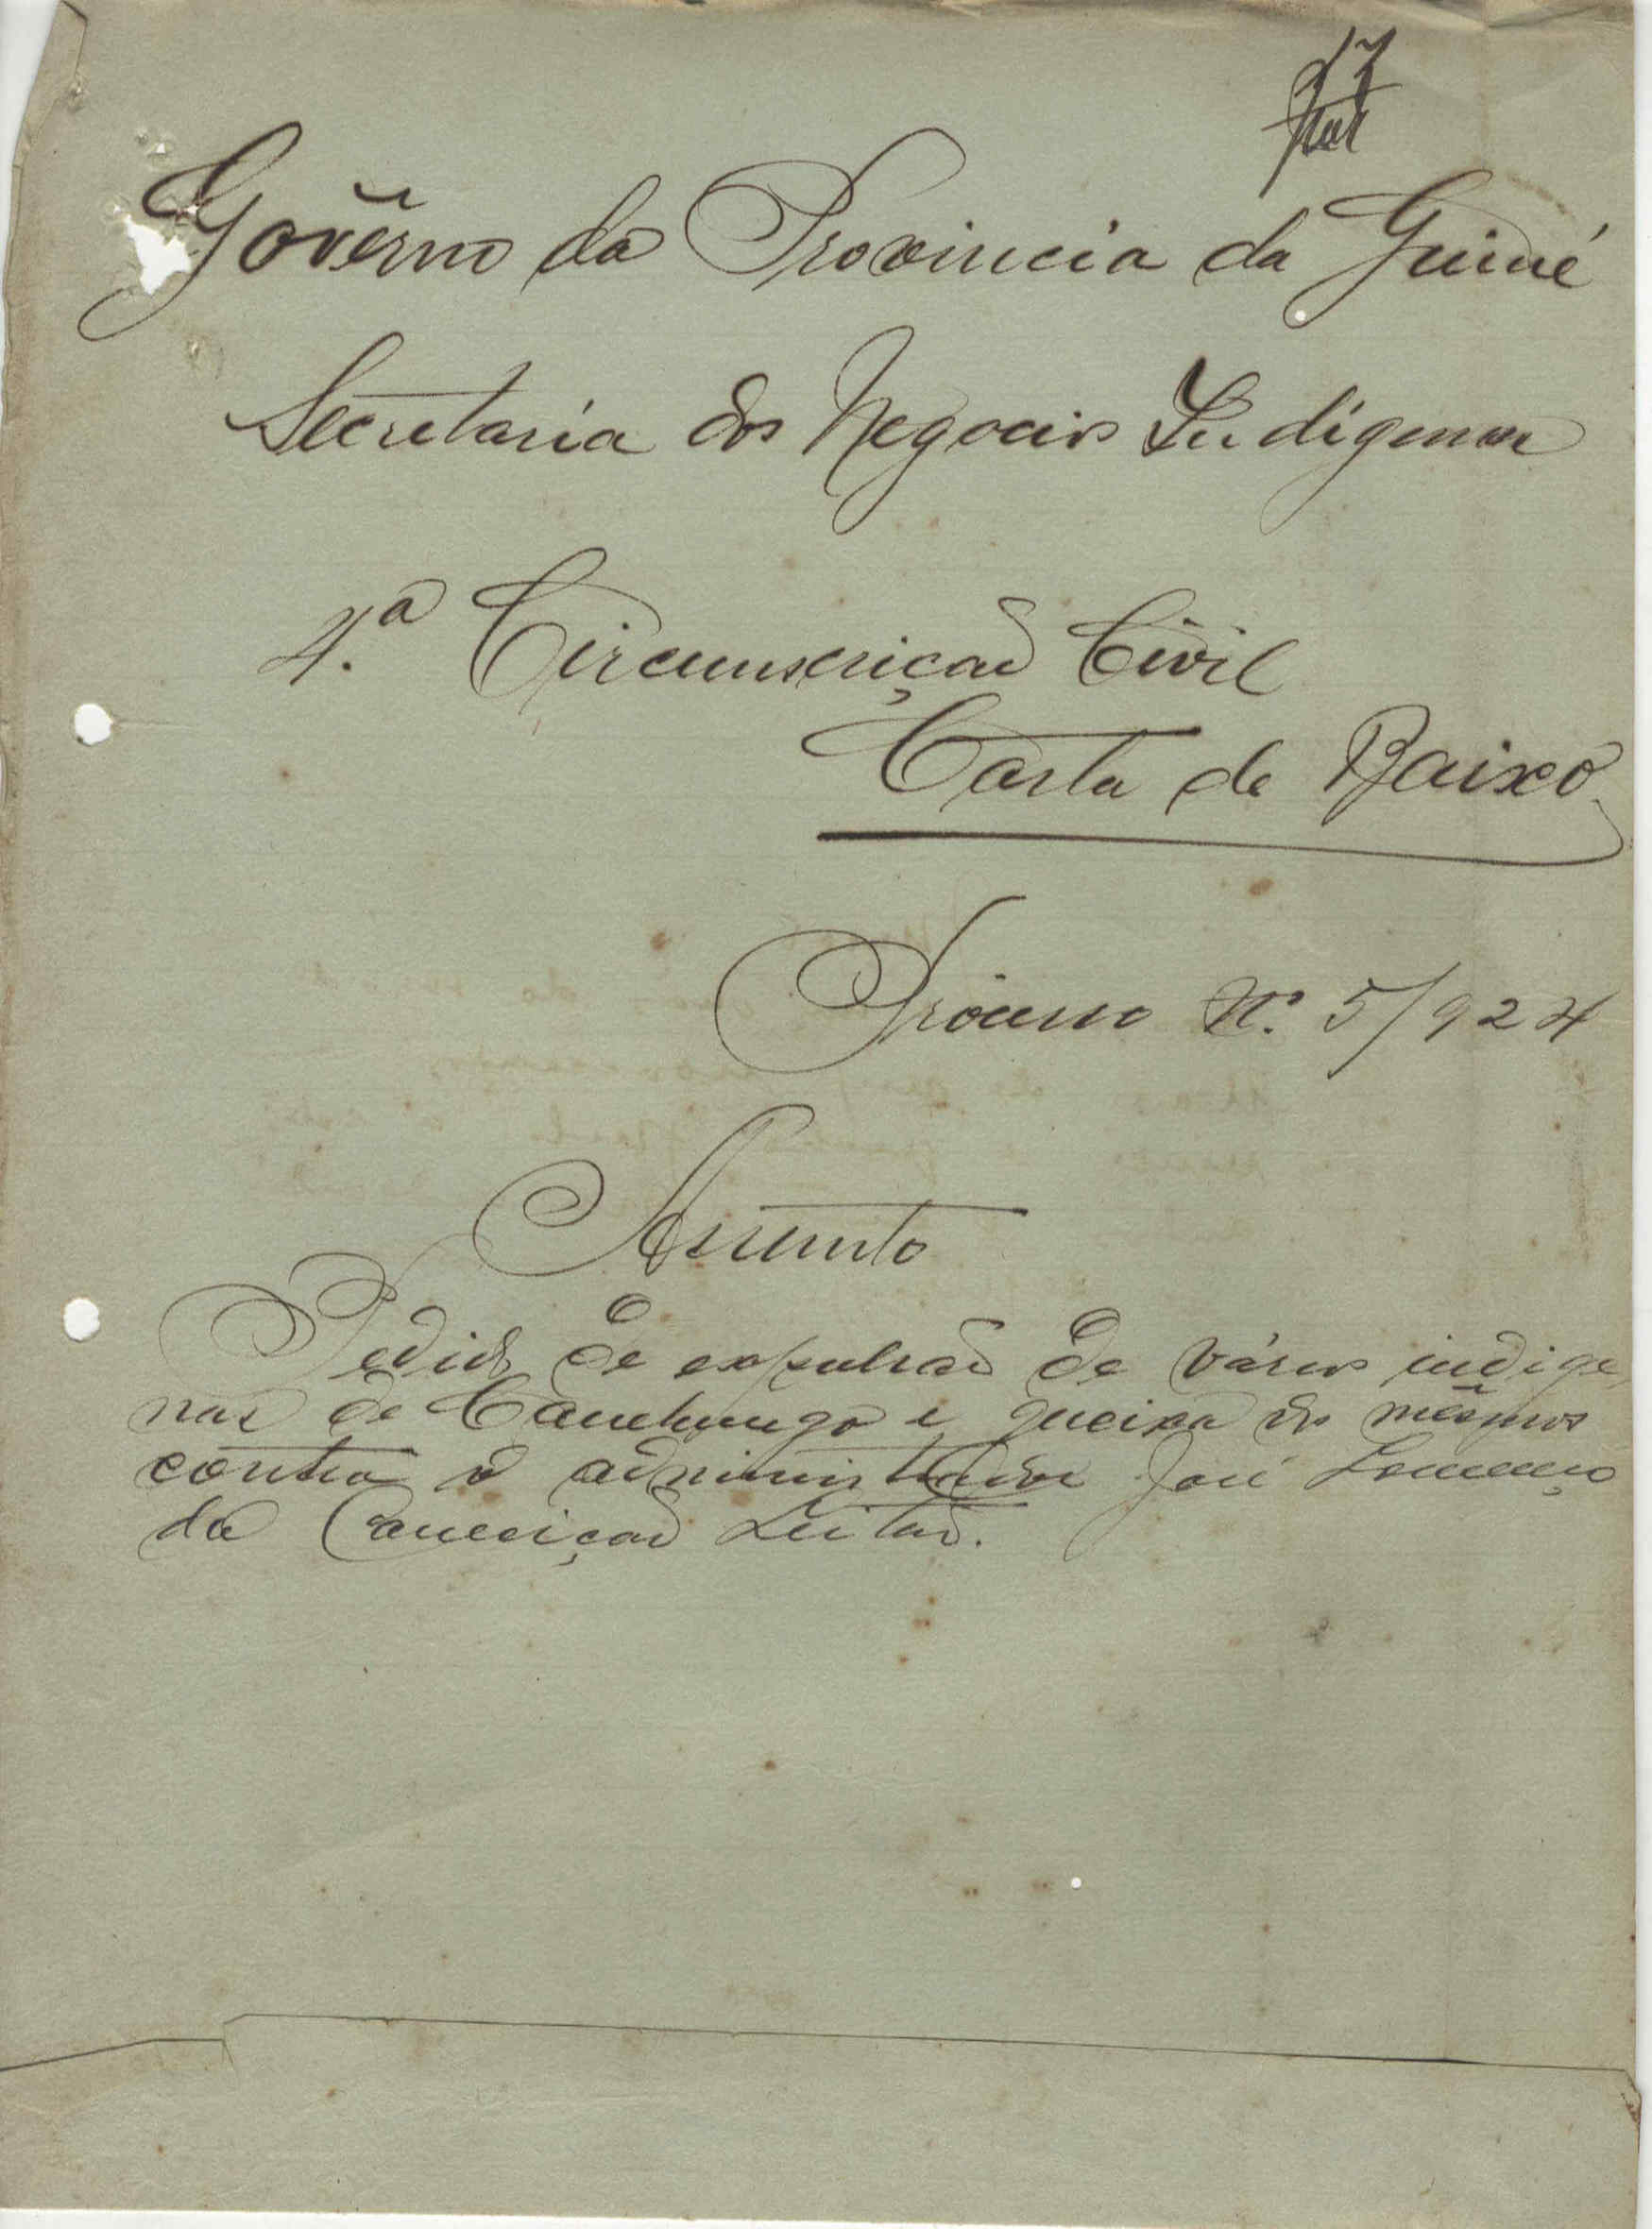 17
Govêrno da Provincia da Guiné
Secretaria dos Negocios Indigenas
4.ª Circunscrição Civil
Costa de Baixo
Processo N.º 5/924
Assunto
Pedido de expulsão de vários indige
nas de Canchungo e queixa dos mêsmos
contra o administrador José Lourenço
da Conceição Leitão.